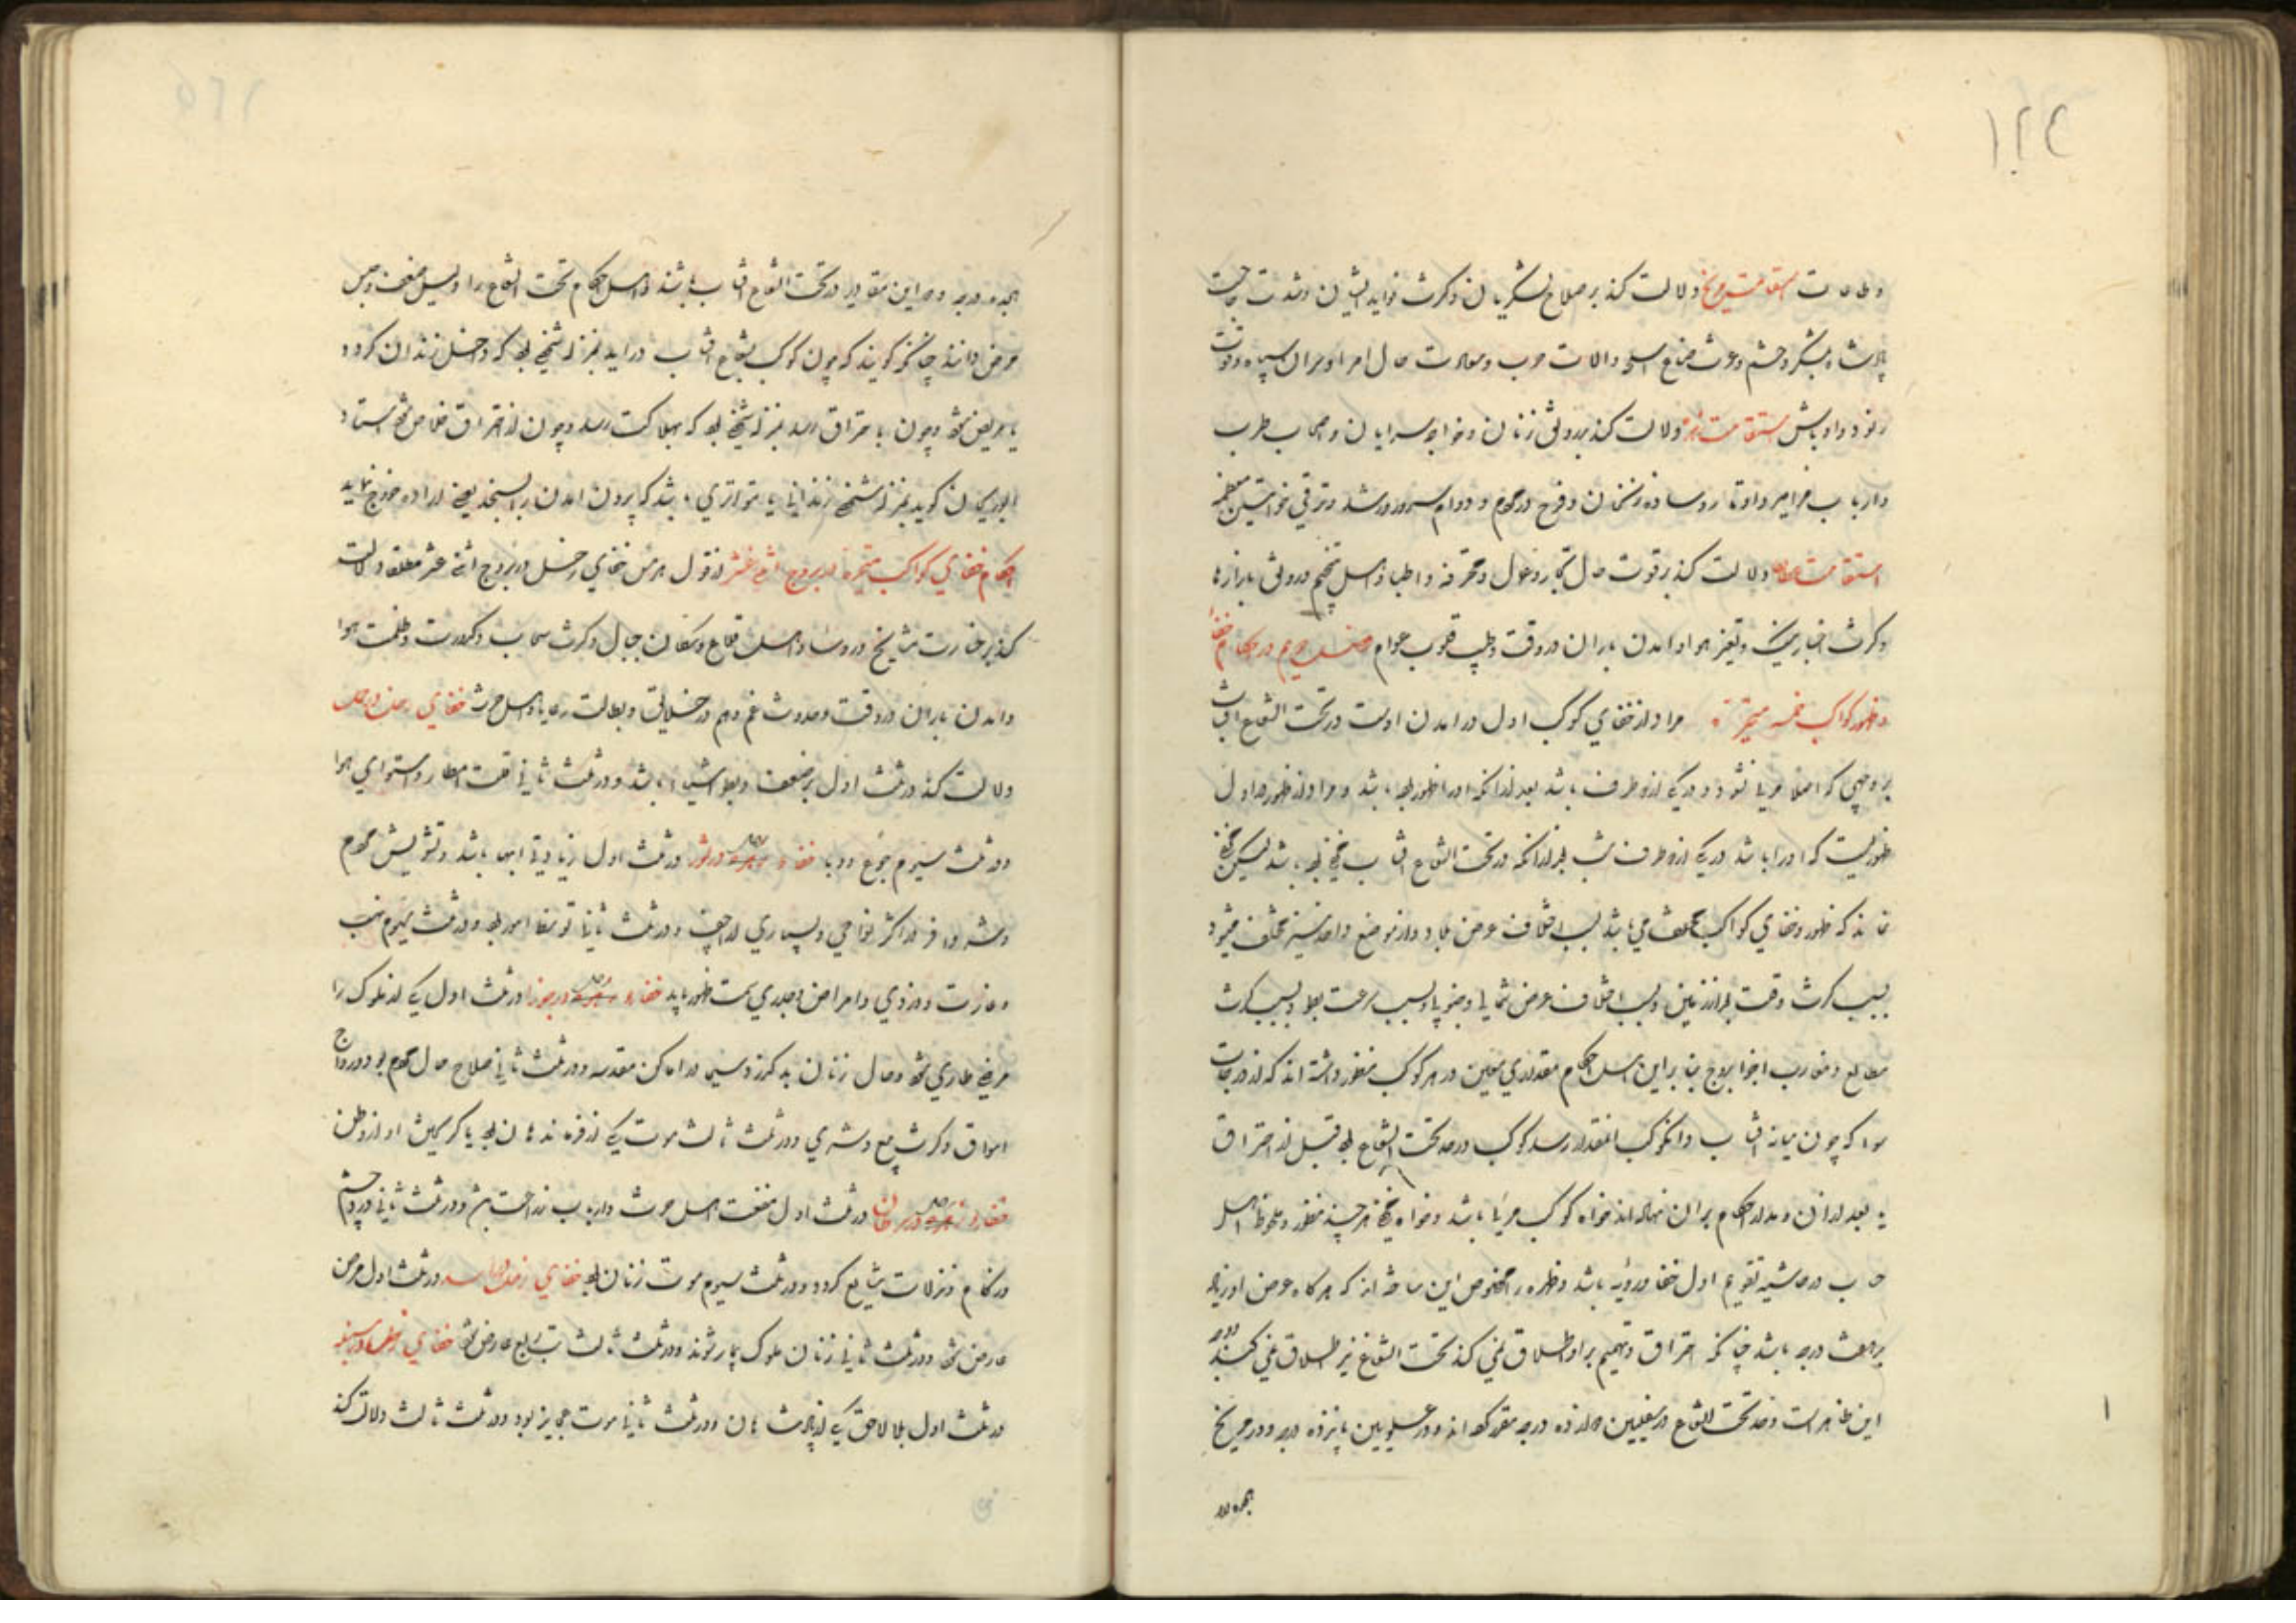 ۱۲۴
استقامت مریخ دلالت کند بر صلاح لشکریان و کثرت فواید ایشان و شدت
پادشاه بلشکر و حشم و عزت صناع اسلحه و الات حرب و سعادت حال امرا و سران سپاه و قوت
رنود و اوباش استقامت زهره دلالت کند بر رونق زنان و خواجه سرایان و اصحاب طرب
و ارباب مزامیر و اوتار و ساده زنخان و فرح مردم و دوام سرور و رشد و ترقی خواتین معظمه
استقامت عطارد دلالت کند بر قوت حال تجار و عمال و محترفه و اطبا و اهل تنجیم و رونق بازارها
و کثرت اخبار نیک و تغیر هوا و امدن باران در وقت و طیب قلوب عوام فصل در احکام خفا
و ظهور کواکب خمسه متحیره مراد از خفای کوکب اول در امدن اوست در تحت الشعاع افتاب
بر وجهی که اصلا مرئی نشود در یکی از دو طرف باشد بعد از انکه او را ظهور بوده باشد و مراد از ظهور اول
ظهوریست که او را باشد در یکی از دو طرف شب بعد از انکه در تحت الشعاع افتاب مخفی بوده باشد لیکن مخفی
نماند که ظهور و خفای کواکب مختلف می باشد بسبب اختلاف عرض بلاد و از موضع واحد نیز مختلف میشود
بسبب کثرت و قلت بعد از زمین و بسبب اختلاف عرض شمالی و جنوبی و بسبب سرعت و بطو و بسبب کثرت
مطالع و مغارب اجزا بروج بنا بر این اهل احکام مقداری معین در هر کوکب منظور داشته اند که از درجات
سوا که چون میانه افتاب و انکوکب بانمقدار رسد کوکب در حد تحت الشعاع بود قبل از احتراق
یا بعد از ان و مدار احکام بران نهاده اند خواه کوکب مرئی باشد و خواه مخفی هر چند منظور و ملحوظ اهل
حساب در حاشیه تقویم اول خفا و رویه باشد و زهره را مخصوص این ساخته اند که هر گاه عرض او زیاده
بر هفت درجه باشد چنانکه احتراق و تصمیم بر او اطلاق نمی کنند تحت الشعاع نیز اطلاق نمی کنند و وجه
این ظاهر است و حد تحت الشعاع در سفلیین دوازده درجه مقرر کرده اند و در علویین پانزده درجه و در مریخ
هجده درجه
هجده درجه و در این مقادیر در تحت الشعاع افتاب باشند و اهل احکام تحت الشعاع را دلیل ضعف و حبس
مرض دانند چنانکه گویند که چون کوکب بشعاع افتاب در اید بمنزله شخصی بود که داخل زندان گردد
یا مریض شود و چون باحتراق رسد بمنزله شخصی بود که بهلاکت رسد و چون از احتراق خلاص شود استاد
ابوریحان گوید بمنزله شخصی زندانی یا متواری باشد که بیرون امدن را بسیجد یعنی اراده خروج نماید
احکام خفای کواکب متحیره در بروج اثنی عشر از قول هرمس خفای زحل در بروج اثنی عشر مطلقا دلالت
کند بر خسارت مشایخ و روسا و اهل قلاع و سکان جبال و کثرت سحاب و کدورت و ظلمت هوا
و امدن باران در وقت و حدوث غم و هم در خلایق و بطالت رعایا و اهل حرث خفای زحل در حمل
دلالت کند در ثلث اول بر ضعف و بطو اشیا باشد و در ثلث ثانی قلت امطار و استوای هوا
و در ثلث سیوم بجوع و وبا خفاء زحل در ثور در ثلث اول زیادتی ابها باشد و تشویش مردم
و در ثلث ثانی و در ثلث سیوم
و غارت و دزدی و امراض و جدری ظهور یابد خفاء زحل در جوزا در ثلث اول یکی از ملوک را
مرضی طاری شود و حال زنان بد گذرد سیما در اماکن مقدسه و در ثلث ثانی صلاح حال مردم بود و رواج
اسواق و کثرت بیع و شری و در ثلث ثالث موت یکی از فرماندهان بود یا گریختن او از وطن
خفاء زحل در سرطان در ثلث اول منفعت اهل حرث و ارباب زراعت باشد و در ثلث ثانی درد چشم
و زکام و نزلات شایع گردد و در ثلث سیوم موت زنان بود خفای زحل در اسد در ثلث اول مرض
عارض شود و در ثلث ثانی زنان ملوک بیمار شوند و در ثلث ثالث تب ربع عارض شود خفای زحل در سنبله
در ثلث اول بلا لاحق یکی از پادشاهان و در ثلث ثانی موت عجایز بود و در ثلث ثالث دلالت کند